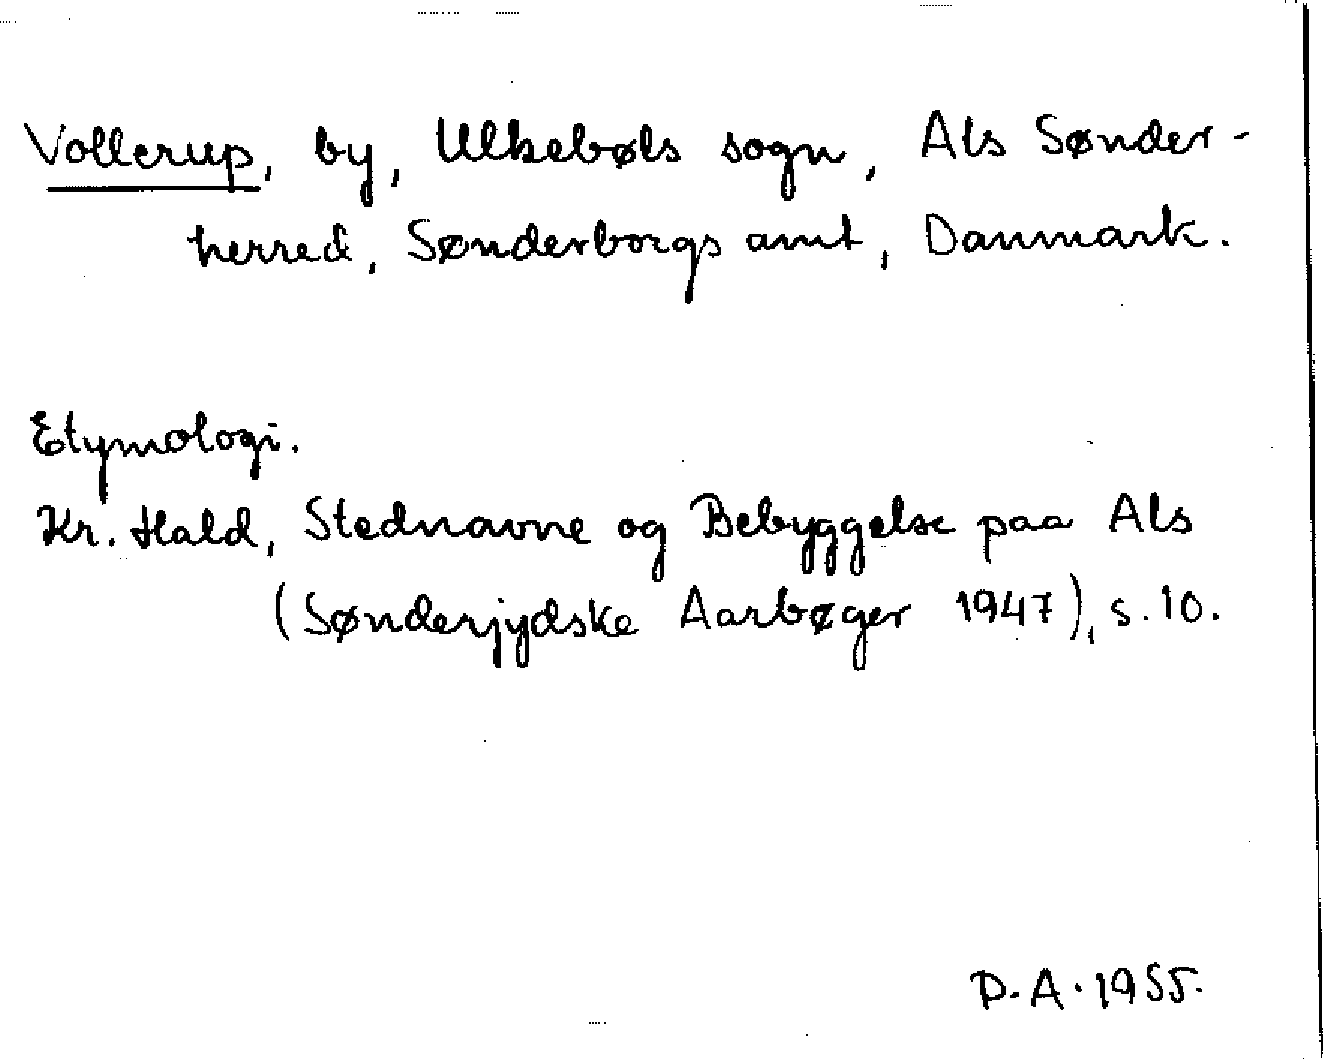 Vollerup, by, Ulkebøls sogn, Als Sønder-
herred, Sønderborgs amt, Danmark.
Etymologi.
Kr. Hald, Stednavne og Bebyggelse paa Als
(Sønderjydske Aarbøger 1947), s. 10.
D.A. 1955.